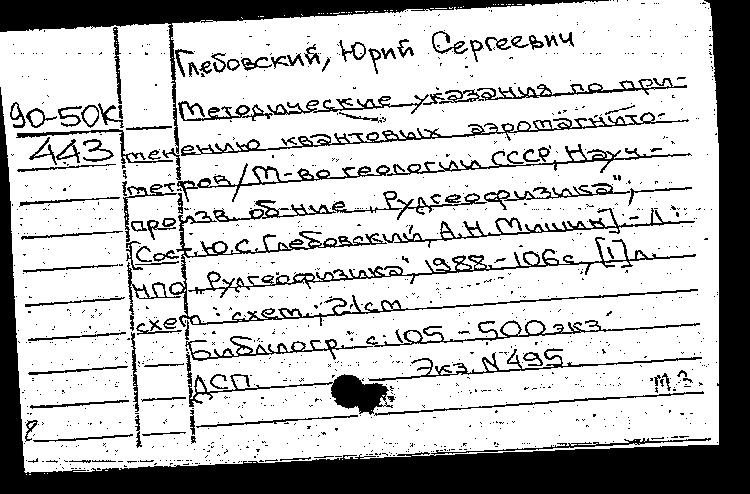 Глебовский, Юрий Сергеевич
90-50К
443
Методические указания по при-
менению квантовых аэромагнито-
метров / М-во геологии СССР, Науч.-
произв. об-ние "Рудгеофизика";
[Сост. Ю.С. Глебовский, А.Н. Мишин]. - Л.:
НПО "Рудгеофизика", 1988. - 106 с., [1] л.
схем. : схем.; 21 см
Библиогр.: с. 105. - 500 экз.
ДСП. Экз. N 495.
т. 3.
8